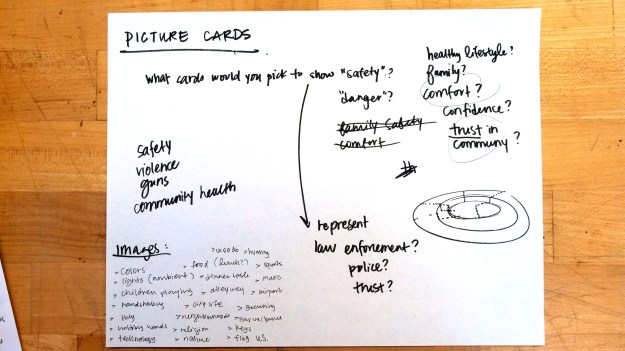 PICTURE CARDS
what cards would you pick to show "safety"?
"danger"?
family safety
comfort
healthy lifestyle?
family?
comfort?
confidence?
trust in
communy?
safety
violence
guns
community health
represent
law enforement?
police?
trust?
Images:
> woods > hunting
> colors > food (lunch?) > sports
> lights (ambient) > dinner table > music
> children playing > alleyway > airport
> handshaking > city life > security
> Hug > neighborhoods > surveillance
> holding hands > religion > keys
> technology > nature > flag U.S.